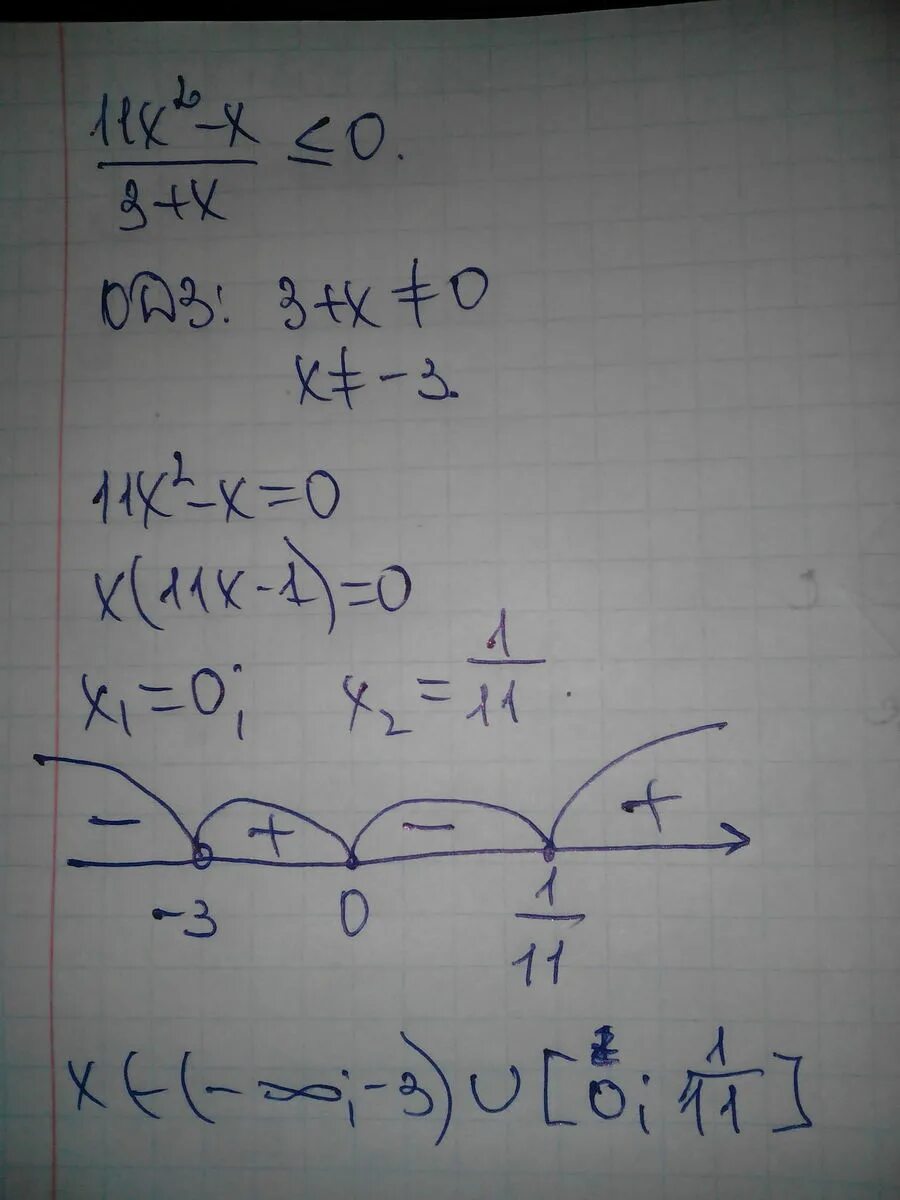 11x² - x
―――― ≤ 0.
3 + x
ОДЗ: 3 + x ≠ 0
x ≠ -3.
11x² - x = 0
x(11x - 1) = 0
x₁ = 0; x₂ = 1/11.
- + - +
-3 0 1/11
x ∈ (-∞; -3) ∪ [0; 1/11]